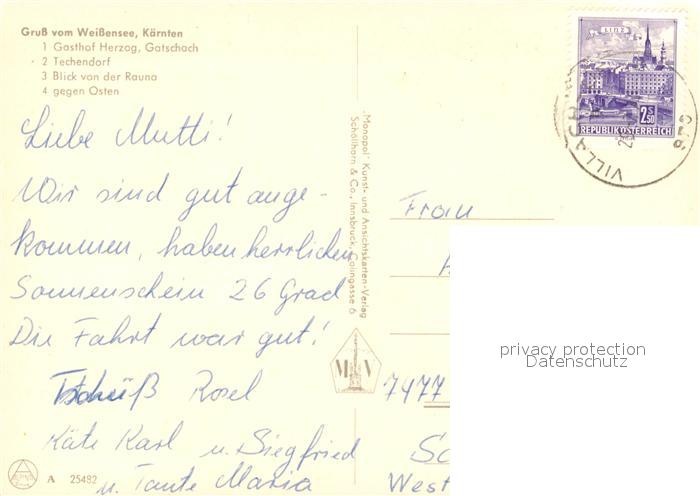 Gruß vom Weißensee, Kärnten
1 Gasthof Herzog, Gatschach
2 Techendorf
3 Blick von der Rauna
4 gegen Osten
Liebe Mutti!
Wir sind gut ange-
kommen, haben herrlichen
Sonnenschein 26 Grad
Die Fahrt war gut!
Tschüß Rosel
Käte Karl u. Siegfried
u. Tante Maria
A 25482
"Monopol" Kunst- und Ansichtskarten-Verlag
Schöllhorn & Co., Innsbruck, Col­ingasse 6
M V
LINZ
2 S 50
REPUBLIK ÖSTERREICH
VILLACH
Frau
7477
West
privacy protection
Datenschutz